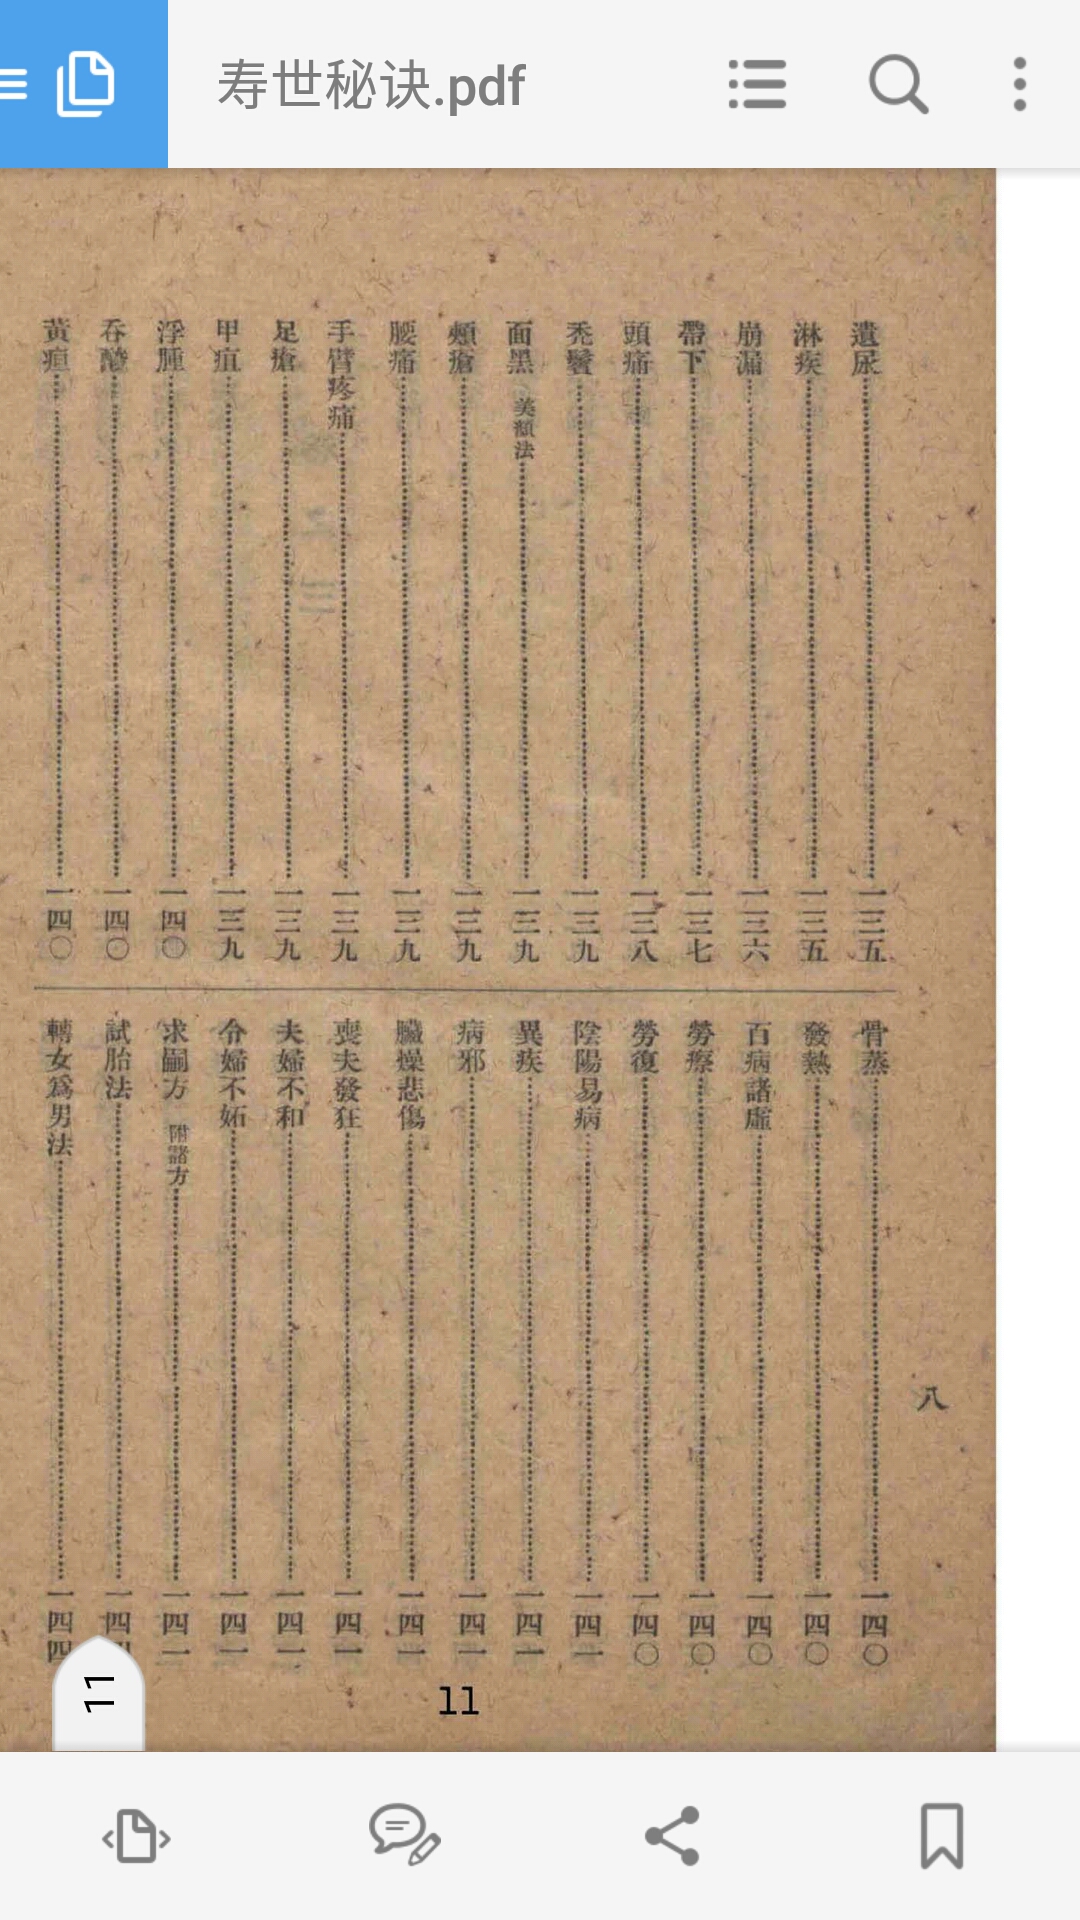 寿世秘诀.pdf
遺尿 一三五
淋疾 一三五
崩漏 一三六
帶下 一三七
頭痛 一三八
禿鬢 一三九
面黑 美顏法 一三九
頰瘡 一三九
腰痛 一三九
手臂疼痛 一三九
足瘡 一三九
甲疽 一三九
浮腫 一四〇
吞酸 一四〇
黃疸 一四〇
骨蒸 一四〇
發熱 一四〇
百病諸虛 一四〇
勞瘵 一四〇
勞復 一四〇
陰陽易病 一四一
異疾 一四一
病邪 一四一
臟燥悲傷 一四一
喪夫發狂 一四一
夫婦不和 一四一
令婦不妬 一四一
求嗣方 附諸方 一四二
試胎法 一四
轉女爲男法 一四四
八
11
11